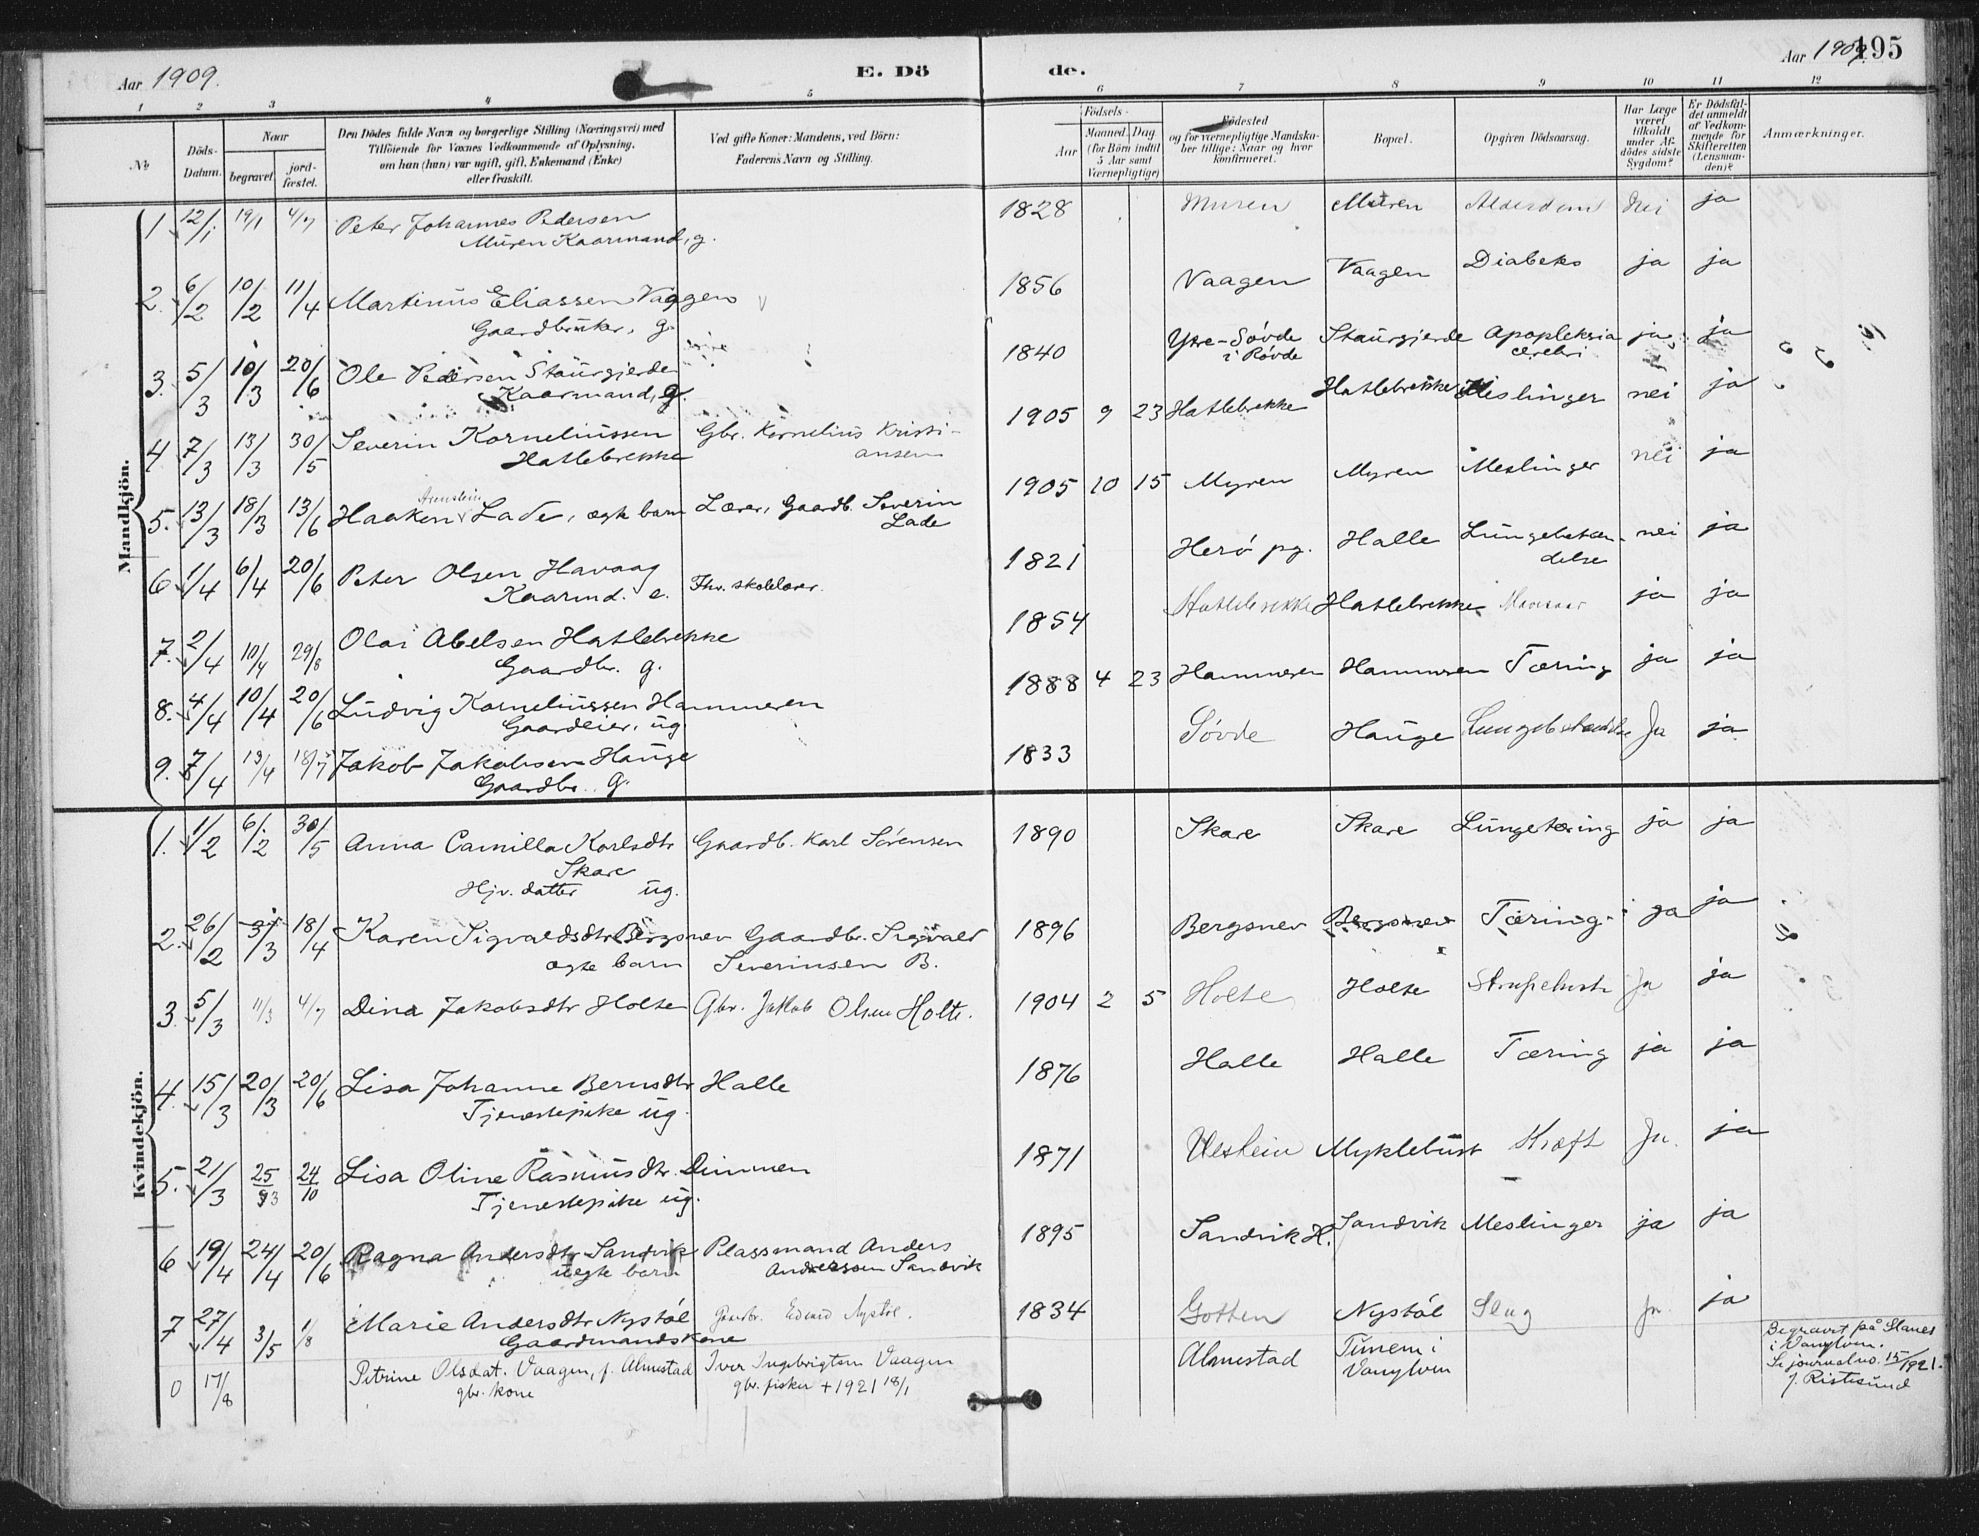 Aar 1909.
E. Döde.
Aar 1909.
195
1 2 3 4 5 6 7 8 9 10 11 12
No
Döds-Datum.
Naar
begravet.
jord-fæstet.
Den Dödes fulde Navn og borgerlige Stilling (Næringsvei) med
Tilföiende for Voxnes Vedkommende af Oplysning,
om han (hun) var ugift, gift, Enkemand (Enke)
eller fraskilt.
Ved gifte Koner: Mandens, ved Börn:
Faderens Navn og Stilling.
Födsels-
Aar
Maaned. Dag
(for Börn indtil
5 Aar samt
Værnepligtige)
Födested
og for værnepligtige Mandska-
ber tillige: Naar og hvor
konfirmeret.
Bopæl.
Opgiven Dödsaarsag.
Har Læge
været
tilkaldt
under Af-
dödes sidste
Sygdom?
Er Dödsfal-
det anmeldt
af Vedkom-
mende for
Skifteretten
(Lensman-
den)?
Anmærkninger.
Mandkjön.
1. 12/1 19/1 4/7 Peter Johannes Pedersen 1828 Muren Muren Alderdom Nei ja
Muren Kaarmand, g.
2. 6/2 10/2 11/4 Martinus Eliassen Vaagen 1856 Vaagen Vaagen Diabetes ja ja
Gaardbruker, g.
3. 5/3 10/3 20/6 Ole Pedersen Staurgjerde 1840 Ytre-Søvde i Røvde Staurgjerde Apopleksia cerebri ja ja
Kaarmand, g.
4 7/3 13/3 30/5 Severin Korneliussen Gbr. Kornelius Kristi- 1905 9 23 Hatlebrekke Hatlebrekke Meslinger nei ja
Hatlebrekke ansen
5. 13/3 18/3 13/6 Haaken Arnstein Lade, ægte barn Lærer, Gaardb. Severin 1905 10 15 Myren Myren Meslinger nei ja
Lade
6 1/4 6/4 20/6 Peter Olsen Havaag Fhv. skolelærer. 1821 Herø pg. Halle Lungebetæn-delse nei ja
Kaarmd. e.
7. 2/4 10/4 29/8 Olai Abelsen Hatlebrekke 1854 Hatlebrekke Hatlebrekke ja ja
Gaardbr. g.
8. 4/4 10/4 20/6 Ludvig Korneliussen Hammeren 1888 4 23 Hammeren Hammeren Tæring ja ja
Gaardeier, ug.
9. 7/4 13/4 18/7 Jakob Jakobsen Hauge 1833 Søvde Hauge Ja ja
Gaardbr. g.
Kvindekjön.
1. 1/2 6/2 30/5 Anna Camilla Karlsdtr Gaardb. Karl Sörensen 1890 Skare Skare Lungetæring ja ja
Skare
Hjv. datter ug.
2. 26/2 3/3 18/4 Karen Sigvaldsdtr Bergsnev Gaardbr. Sigvald 1896 Bergsnev Bergsnev Tæring ja ja
ægte barn Severinsen B.
3. 5/3 11/3 4/7 Dina Jakobsdtr Holte Gbr. Jakob Olsen Holte. 1904 2 5 Holte Holte Strupehoste Ja ja
4. 15/3 20/3 20/6 Lisa Johanne Berntsdtr Halle 1876 Halle Halle Tæring ja ja
Tjenestepike ug.
5. 21/3 25/3 24/10 Lisa Oline Rasmusdtr. Dimmen 1871 Myklebust Kræft Ja. ja
Tjenestepike ug.
6 19/4 24/4 20/6 Ragna Andersdtr Sandvik Plassmand Anders 1895 Sandvik H. Sandvik Meslinger ja ja
uegte barn Anderssen Sandvik
7 27/4 3/5 1/8 Marie Andersdtr Nystøl Gaardbr. Edvard Nystøl. 1834 Gotten Nystøl Slag Ja ja
Gaardmandskone
0 17/8 Petrine Olsdat. Vaagen, f. Almestad Iver Ingebrigtsen Vaagen Almestad Tunem i Vanylven
gbr. kone gbr. fisker + 1921 18/1
Begravet på Slanes
i Vanylven.
Se journalno. 15/1921.
J. Ristesund